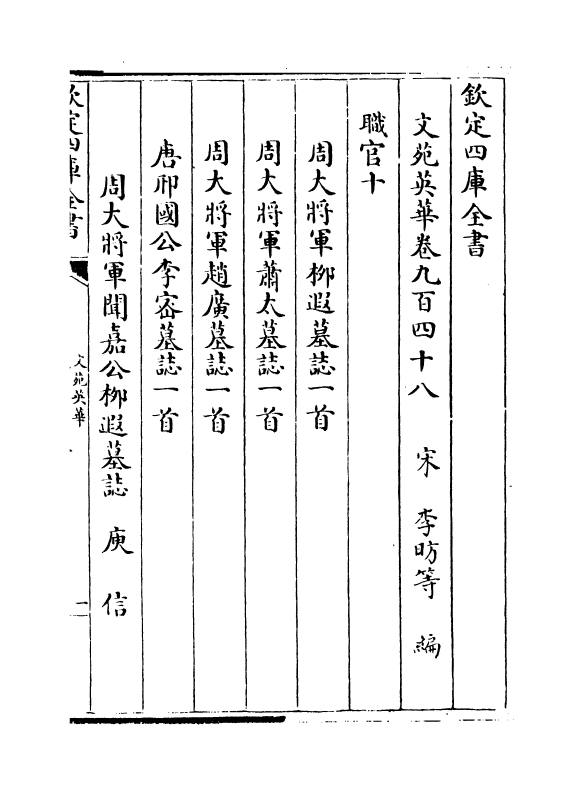 欽定四庫全書
文苑英華卷九百四十八 宋 李昉等 編
職官十
周大將軍柳遐墓誌一首
周大將軍蕭太墓誌一首
周大將軍趙廣墓誌一首
唐邢國公李密墓誌一首
周大將軍聞嘉公柳遐墓誌 庾 信
欽定四庫全書 文苑英華 一